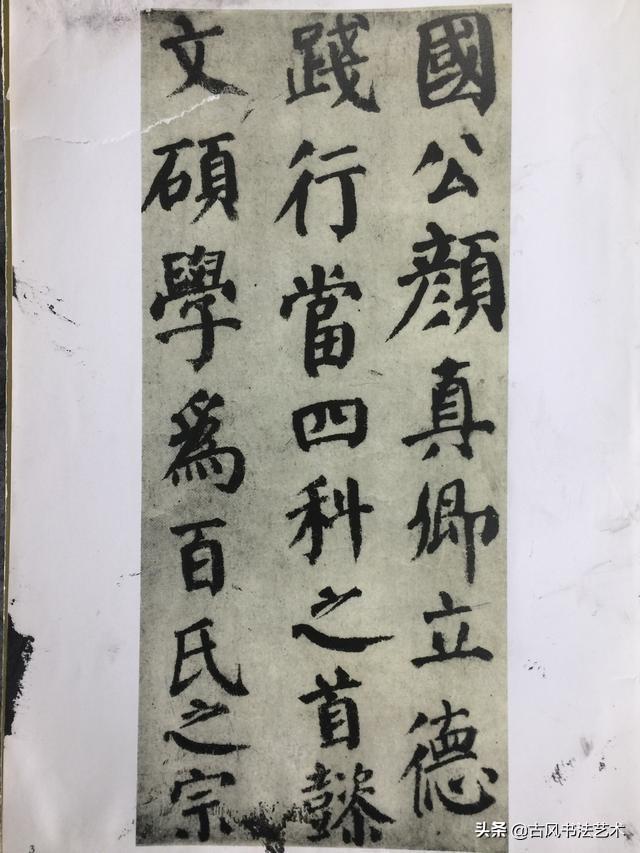 國公顔真卿立德
踐行當四科之首懿
文碩學爲百氏之宗
3
头条 @古风书法艺术